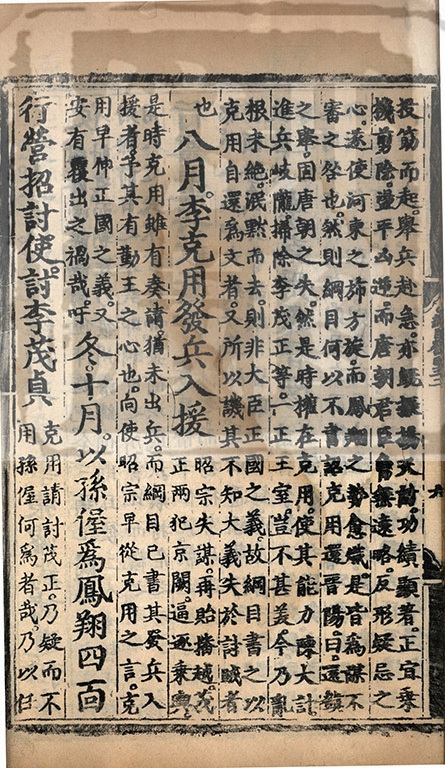 投笏而起。舉兵赴急亦既振揚天討。功績顯著。正宜乘
機剪除。蕩平凶逆。而唐朝君臣曾無遠略。反形疑忌之
心。遂使河東之旆方旋而鳳翔之勢愈熾。是皆為謀不
審之咎也。然則綱目何以不書詔克用還晉陽。曰。還鎮
之舉。固唐朝之失。然是時權在克用。使其能力陳大計
進兵岐隴。掃除李茂正等。一正王室。豈不甚美。今乃亂
根未絶。泯黙而去。則非大臣正國之義。故綱目書之以
克用自還為文者。又所以譏其不知大義失於討賊者
也
八月。李克用發兵入援
昭宗失謀。再貽播越。茂
正兩犯京闕。逼逐乘輿
是時克用雖有奏請猶未出兵。而綱目已書其發兵入
援者。予其有勤王之心也。向使昭宗早從克用之言。克
用早伸正國之義。又
安有覆出之禍哉。吁
冬。十月。以孫偓為鳳翔四面
行營招討使。討李茂貞
克用請討茂正。乃疑而不
用孫偓何為者哉。乃以任